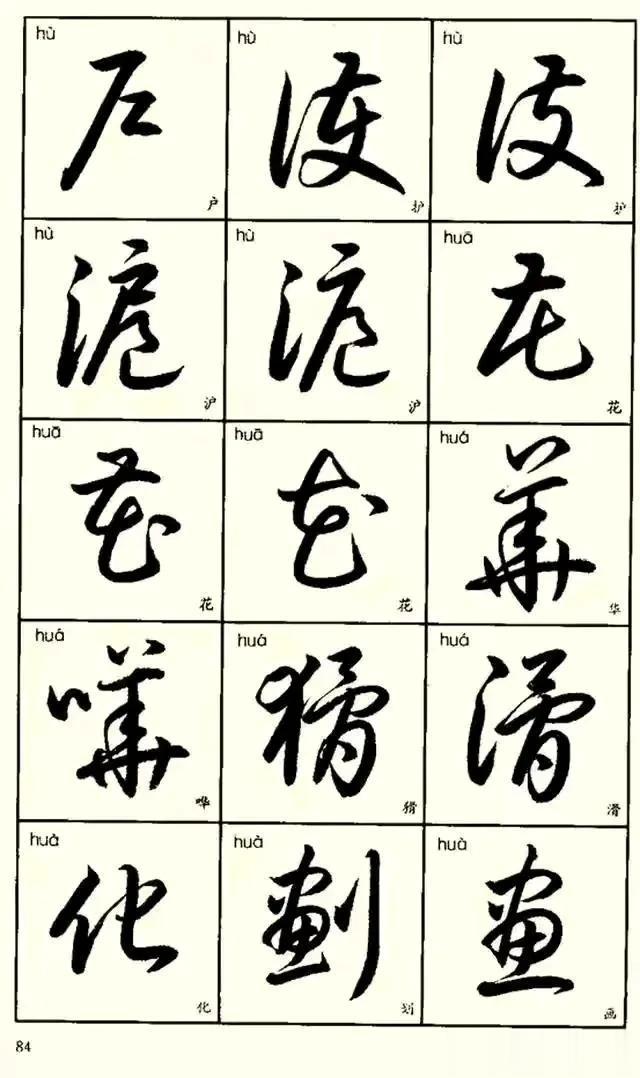 hù hù hù
户 护 护
户 护 护
hù hù huā
沪 沪 花
沪 沪 花
huā huā huá
花 花 華
花 花 华
huá huá huá
嘩 猾 滑
哗 猾 滑
huà huà huà
化 劃 畫
化 划 画
84